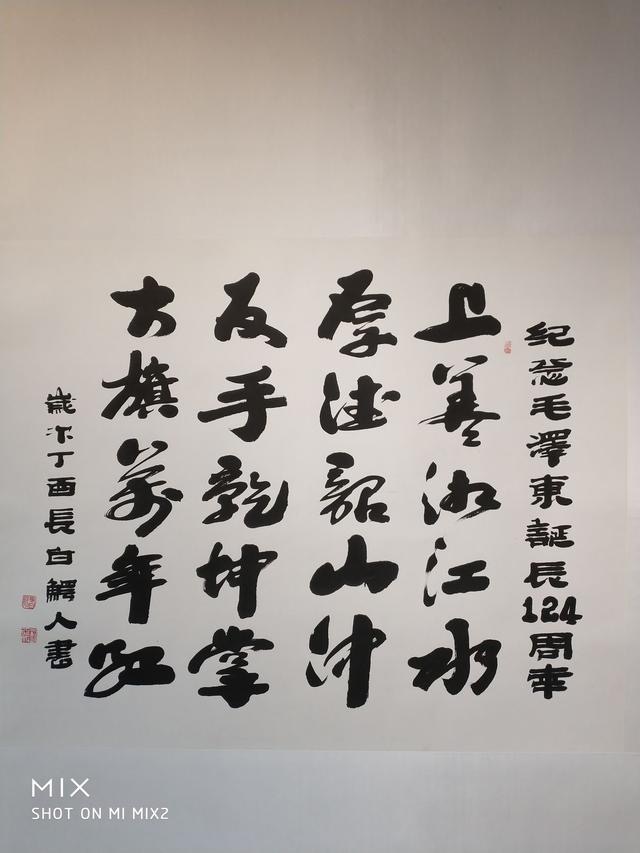 纪念毛澤東誕辰124周年
上善湘江水
厚德韶山冲
反手乾坤掌
大旗萬年红
歲次丁酉長白人書
MIX
SHOT ON MI MIX2